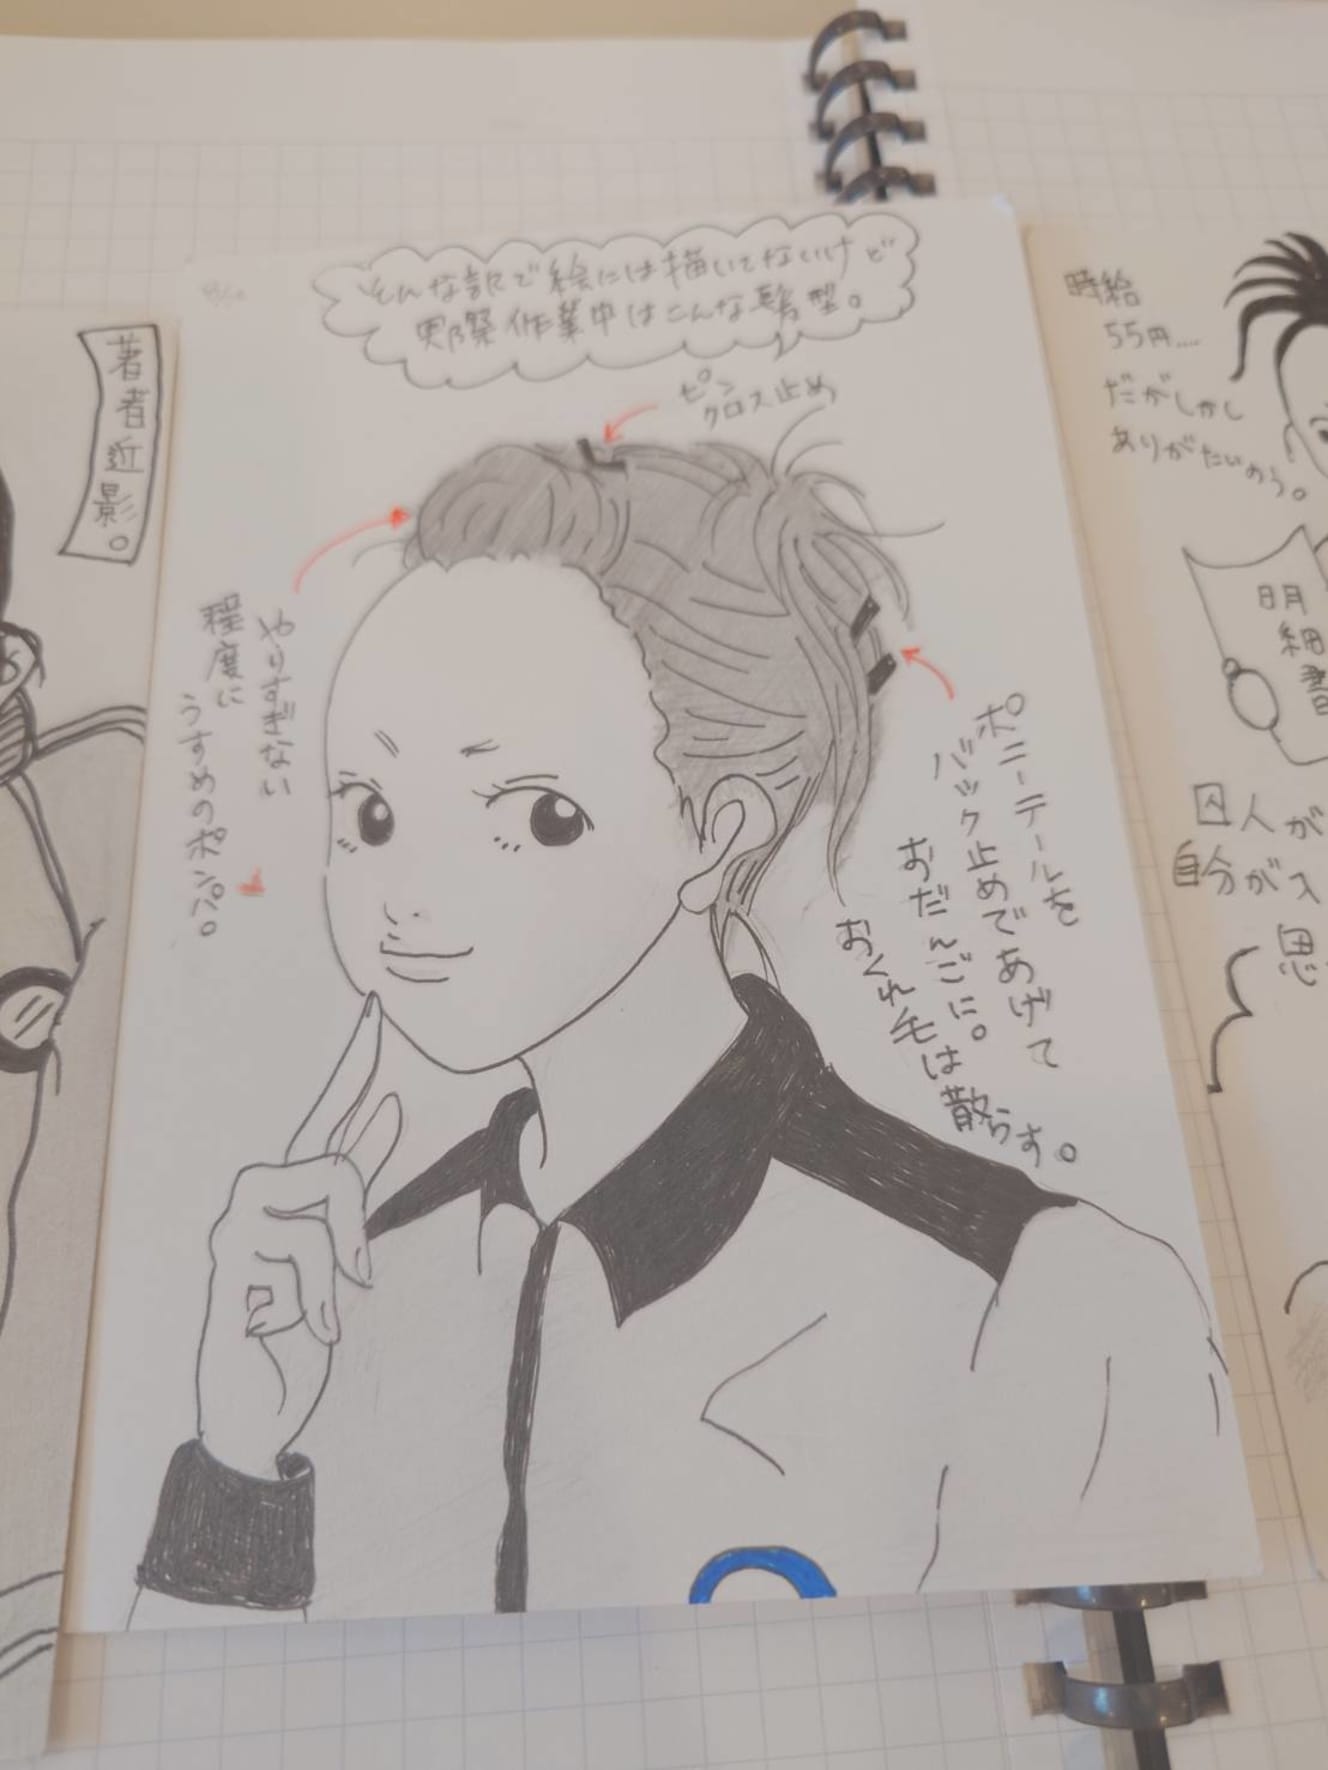 そんな訳で絵には描いてないけど
実際作業中はこんな髪型。
ピン
クロス止め
やりすぎない
程度に
うすめのポンパ。
ポニーテールを
バック止めであげて
おだんごに。
おくれ毛は散らす。
著者近影。
時給
55円....
だがしかし
ありがたいのう。
明細書
囚人が
自分がス
思